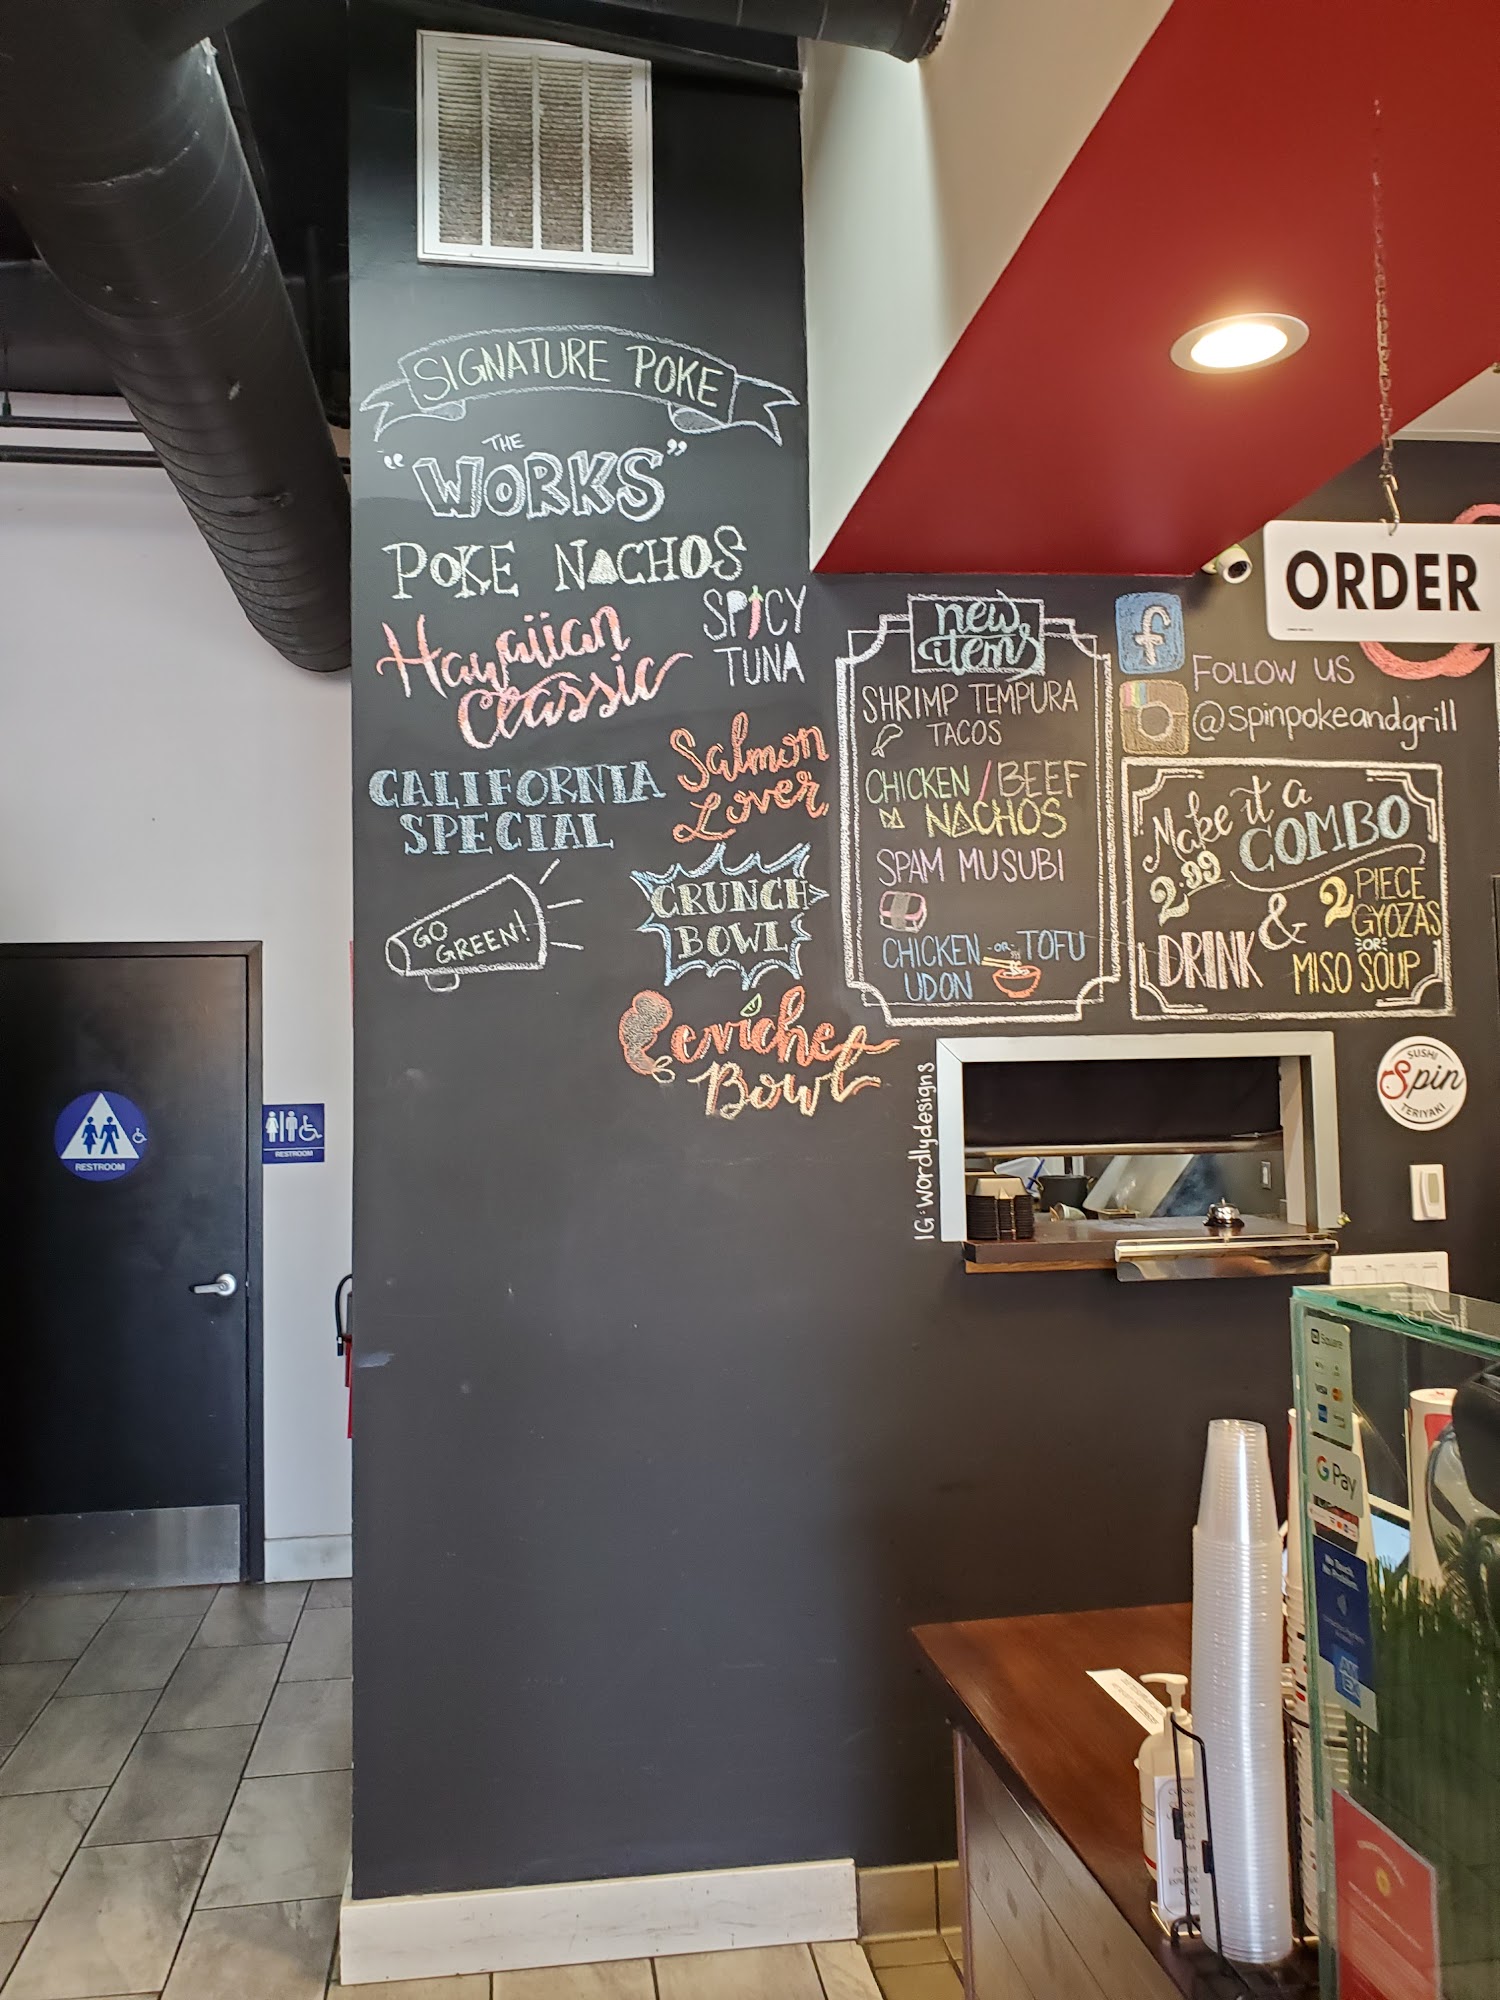 SIGNATURE POKE
THE
"WORKS"
POKE NACHOS
Hawaiian
Classic
SPICY
TUNA
CALIFORNIA
SPECIAL
Salmon
Lover
GO
GREEN!
CRUNCH
BOWL
Ceviche
Bowl
new
items
SHRIMP TEMPURA
TACOS
CHICKEN / BEEF
NACHOS
SPAM MUSUBI
CHICKEN -OR- TOFU
UDON
f
FOLLOW US
@spinpokeandgrill
Make it a
2.99 COMBO
DRINK & 2 PIECE
GYOZAS
OR
MISO SOUP
ORDER
IG: wordlydesigns
SUSHI
Spin
TERIYAKI
RESTROOM
RESTROOM
Square
VISA
G Pay